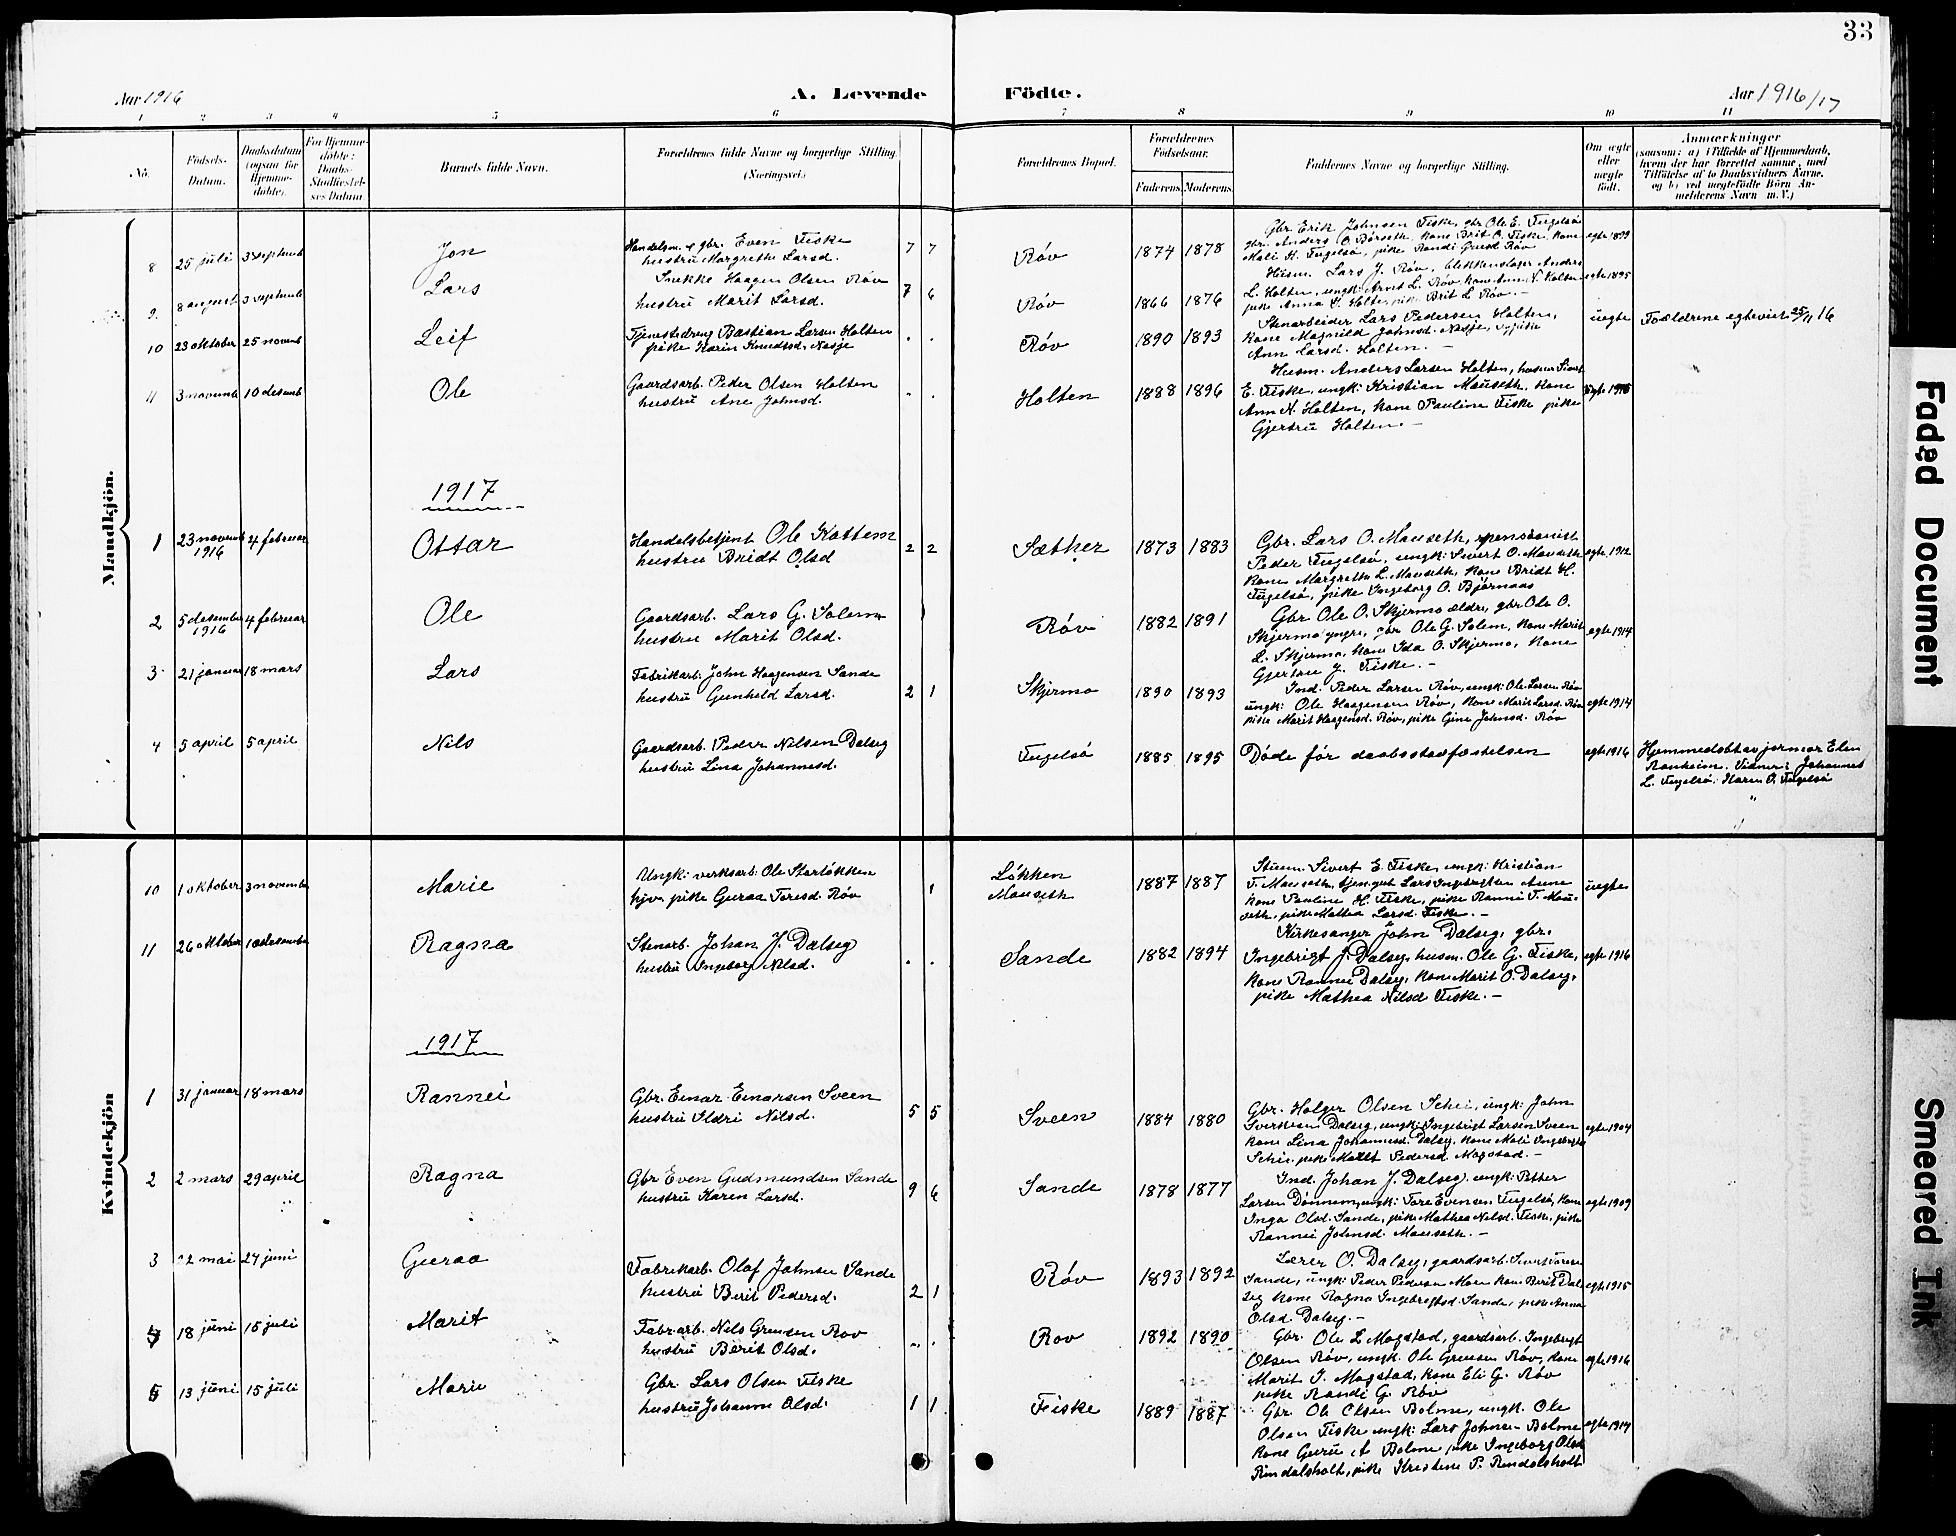 33
Aar 1916
A. Levende
Födte.
Aar 1916/17
1 2 3 4 5 6 7 8 9 10 11
No.
Födsels-
Datum.
Daabsdatum
(ogsaa for
Hjemme-
døbte).
For Hjemme-
døbte:
Daabs-
Stadfæstel-
ses Datum
Barnets fulde Navn.
Forældrenes fulde Navne og borgerlige Stilling
(Næringsvei)
Forældrenes Bopæl.
Forældrenes
Fødselsaar.
Faderens. Moderens.
Faddernes Navne og borgerlige Stilling.
Om ægte
eller
uægte
født.
Anmærkninger
(saasom: a) i Tilfælde af Hjemmedaab,
hvem der har forrettet samme, med
Tilføielse af to Daabsvidners Navne,
og b) ved uægtefødte Börn An-
melderens Navn m.V.)
Mandkjön.
8 25 juli 3 septemb Jon
Handelsm. og gbr. Even Fiske
hustru Margrethe Larsd.
7 7 Røv 1874 1878
Gbr Erik Johnsen Fiske, gbr Ole E. Fugelsø
gbr. Anders O. Børseth, kone Brit O. Fiske, kone
Mali H. Fugelsø, pike Randi Grued Røv
egte 1899
9. 8 august 3 septemb Lars
Snekke Haagen Olsen Røv
hustru Marit Larsd.
7 6 Røv 1866 1876
Husm. Lars J. Røv, blikkenslager Anders
L. Holten, ungk: Arnt L. Røv, kone Ann N. Holten
pike Anna L. Holte, pike Brit L. Røv. -
egte 1895
10 23 oktober 25 novemb Leif
Tjenestedreng Bastian Larsen Holten
pike Karin Knudtsd. Nasje
. . Røv 1890 1893
Stenarbeider Lars Pedersen Holten,
kone Magnild Johnsd. Nasje, pike
Ann Larsd. Holten. -
uegte
Foældrene egteviet 25/11 16
11 3 novemb 10 desemb Ole
Gaardsarb. Peder Olsen Holten
hustru Ane Johnsd.
. . Holten 1888 1896
Husm. Anders Larsen Holten, husm Sivert
E. Fiske, ungk: Kristian Mauseth, kone
Ann N. Holten, kone Pauline Fiske pike
Gjertru Holten. -
egte 1915
1917
1 23 novemb 1916 4 februar Ottar
Handelsbetjent Ole Kattem
hustru Bridt Olsd
2 2 Sæther 1873 1883
Gbr. Lars O. Mauseth, pensionist
Peder Fugelsø, ungk: Sivert O. Mauseth
kone Margrethe L. Mauseth, kone Bridt H.
Fugelsø, pike Ingeborg O. Bjørnaas
egte 1912
2 5 desember 1916 4 februar Ole
Gaardsarb. Lars G. Solem
hustru Marit Olsd.
Røv 1882 1891
Gbr Ole O. Skjermo ældre, gbr Ole O.
Skjermo yngre, gbr Ole G. Solem, kone Marit
L. Skjermo, kone Ida O. Skjermo, kone
Gjertru J. Fiske. -
egte 1914
3 21 januar 18 mars Lars
Fabrikarb. John Haagensen Sande
hustru Gunhild Larsd.
2 1 Skjermo 1890 1893
Ind. Peder Larsen Røv, ungk: Ole Larsen Røv
ungk: Ole Haagensen Røv, kone Marit Larsd. Røv
pike Marit Haagensd. Røv, pike Gine Johnsd. Røv
egte 1914
4 5 april 5 april Nils
Gaardsarb. Peder Nilsen Dalseg
hustru Lina Johannesd.
Fugelsø 1885 1895
Døde før daabsstadfæstelsen
egte 1916
Hjemmedøbt av jormor Elen
Ranheim. Vidner: Johannes
L. Fugelsø. Karen O. Fugelsø
Kvindekjön
10 1 oktober 3 november Marie
Ungk: verksarb. Ole Storløkken
hjv. pike Guraa Toresd. Røv
1 Løkken
Mauseth 1887 1887
Sturm. Sivert E Fiske, ungk: Kristian
T. Mauseth, tjen.gut Lars Ingebrigtsen Aune
kone Pauline H. Fiske, pike Rannei T. Mau-
seth, pike Mathea Larsd. Fiske. -
uegte
11 26 oktober 10 desember Ragna
Stenarb. Johan J. Dalseg
hustru Ingeborg Nilsd.
. . Sande 1882 1894
Kirkesanger John Dalseg, gbr.
Ingebrigt J. Dalseg, husm. Ole G. Fiske,
kone Rannei Dalseg, kone Marit O. Dalseg,
pike Mathea Nilsd Fiske. -
egte 1916
1917
1 31 januar 18 mars Rannei
Gbr. Einar Einarsen Sveen
hustru Ildri Nilsd.
5 5 Sveen 1884 1880
Gbr. Holger Olsen Schei, ungk: John
Sverkesen Dalseg, ungk: Ingebrigt Larsen Sveen
kone Lina Johannesd. Dalseg, kone Mali Ingebrigts
Schei, pike Marit Pedersd. Mogstad. -
egte 1904
2 2 mars 29 april Ragna
Gbr Even Gudmundsen Sande
hustru Karen Larsd.
9 6 Sande 1878 1877
Ind. Johan J. Dalseg, ungk: Petter
Larsen Dønnem, ungk: Tore Evensen Fugelsø, kone
Inga Olsd. Sande, pike Mathea Nilsd. Fiske, pike
Rannei Johnsd. Mauseth. -
egte 1909
3 22 mai 24 juni Guraa
Fabrikarb. Olaf Johnsen Sande
hustru Berit Pedersd.
2 1 Røv 1893 1892
Lærer O. Dalseg, gaardsarb.
Sande, ungk: Peder Pedersen Moen kone Berit Dal-
seg kone Ragna Ingebrigtsd. Sande, pike Anna
Olsd Dalseg. -
egte 1915
4 18 juni 15 juli Marit
Fabr.arb. Nils Gruesen Røv
hustru Berit Olsd.
Røv 1892 1890
Gbr. Ole L Mogstad, gaardsarb. Ingebrigt
Olsen Røv, ungk. Ole Gruesen Røv, kone
Marit I. Mogstad, kone Eli G. Røv
pike Randi G. Røv
egte 1916
5 13 juni 15 juli Marie
Gbr. Lars Olsen Fiske
hustru Johanne Olsd.
1 1 Fiske 1889 1887
Gbr. Ole Olsen Bolme, ungk. Ole
Olsen Fiske ungk: Lars Johnsen Bolme
kone Guru A Bolme pike Ingeborg Olsd
Rindalsholt, pike Kristine P. Rindalsholt
egte 1914
Faded Document
Smeared Ink